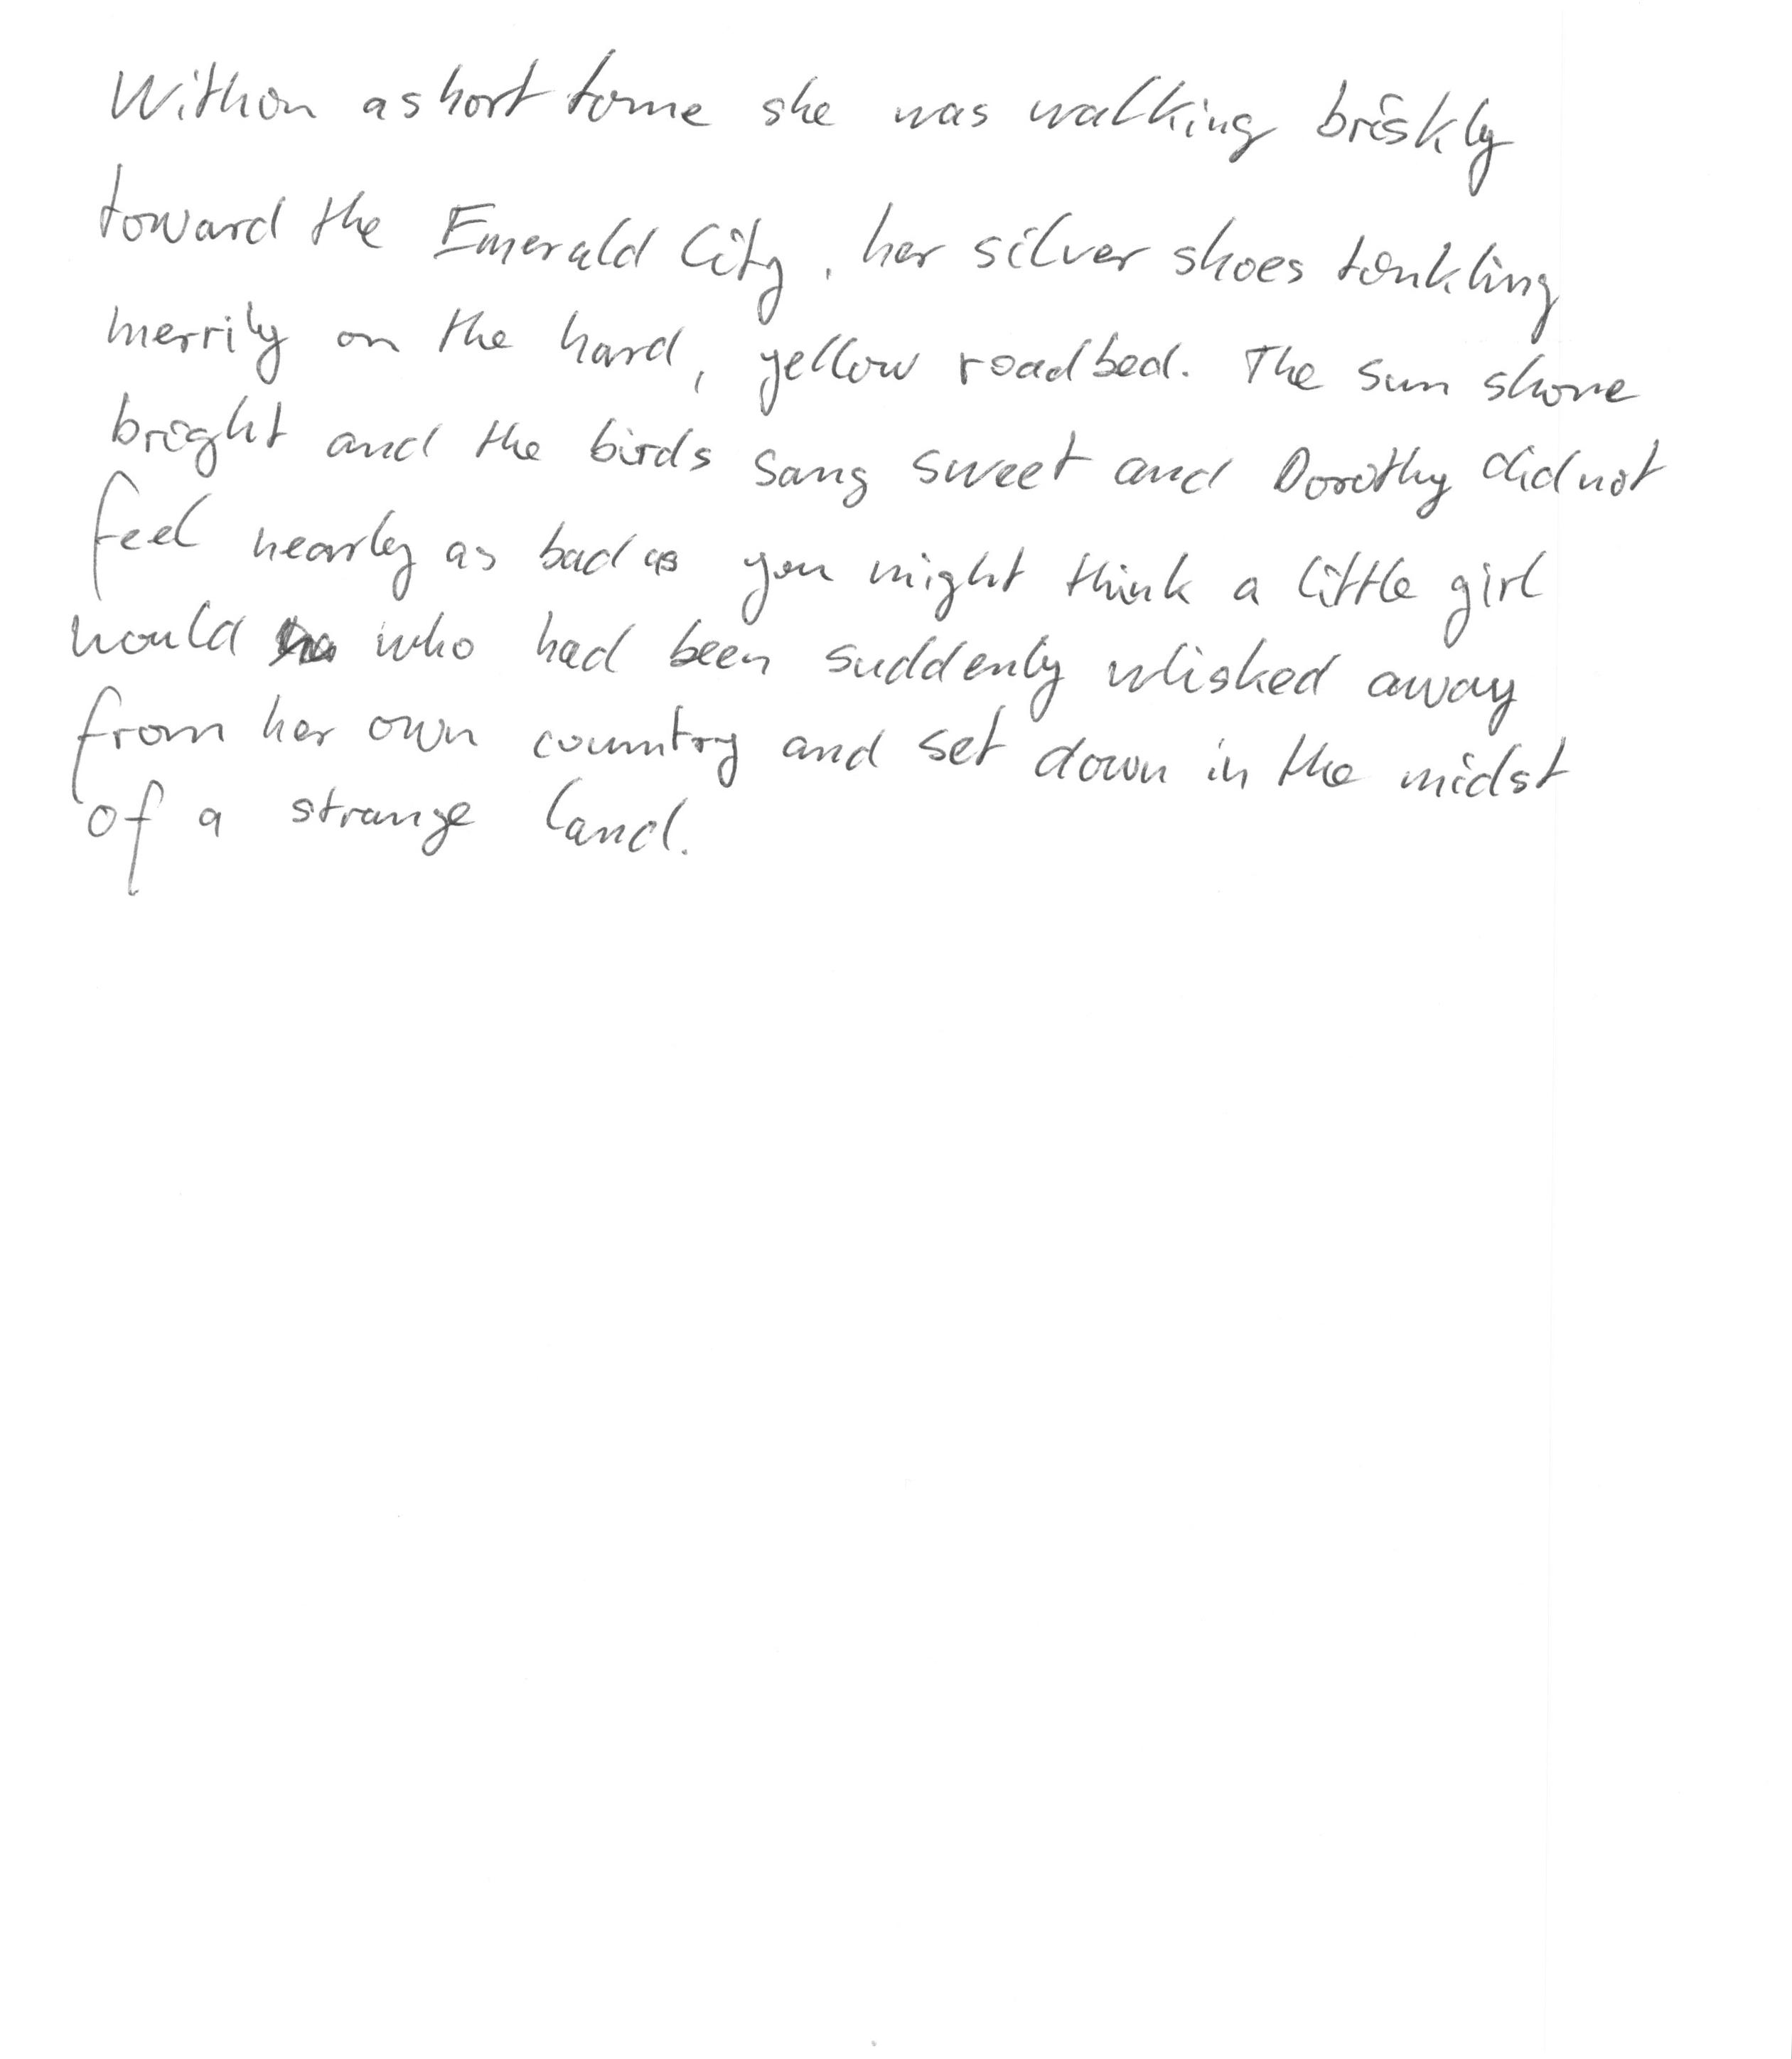 Within a short time she was walking briskly
toward the Emerald City, her silver shoes tinkling
merrily on the hard, yellow roadbed. The sun shone
bright and the birds sang sweet and Dorothy did not
feel nearly as bad as you might think a little girl
would who had been suddenly whisked away
from her own country and set down in the midst
of a strange land.